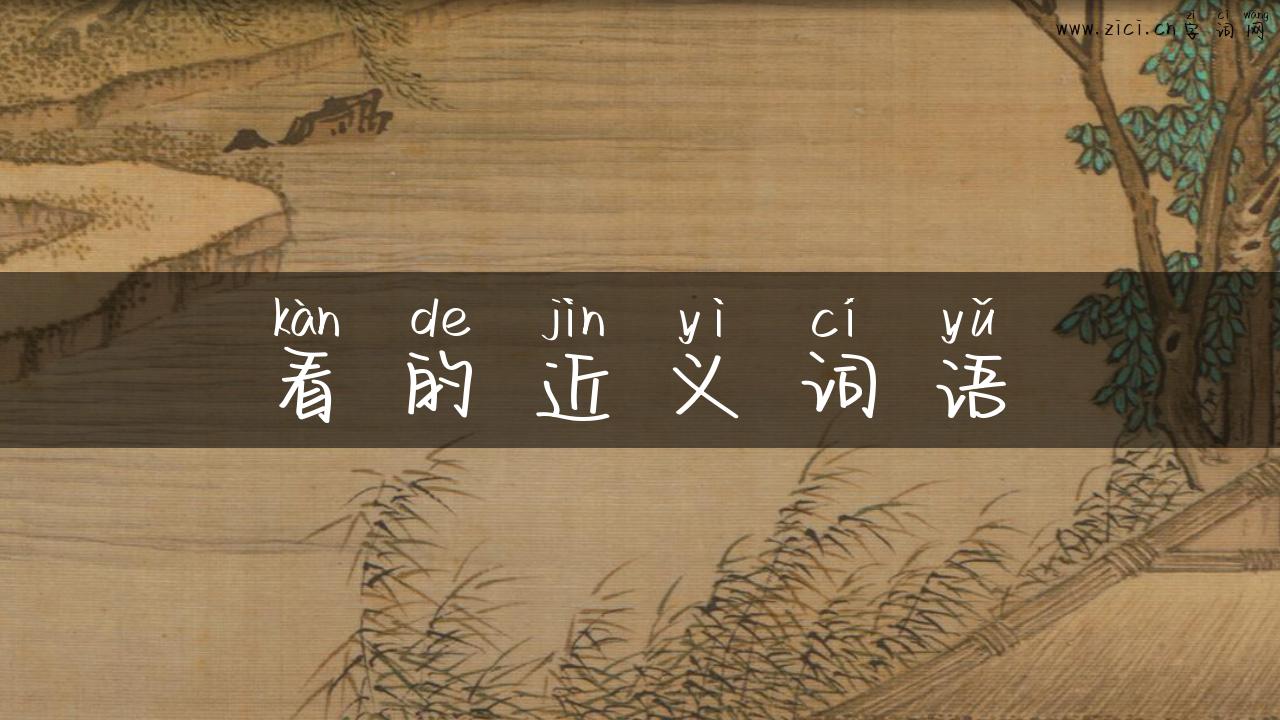 zì cí wǎng
www.zici.cn字词网
kàn de jìn yì cí yǔ
看的近义词语